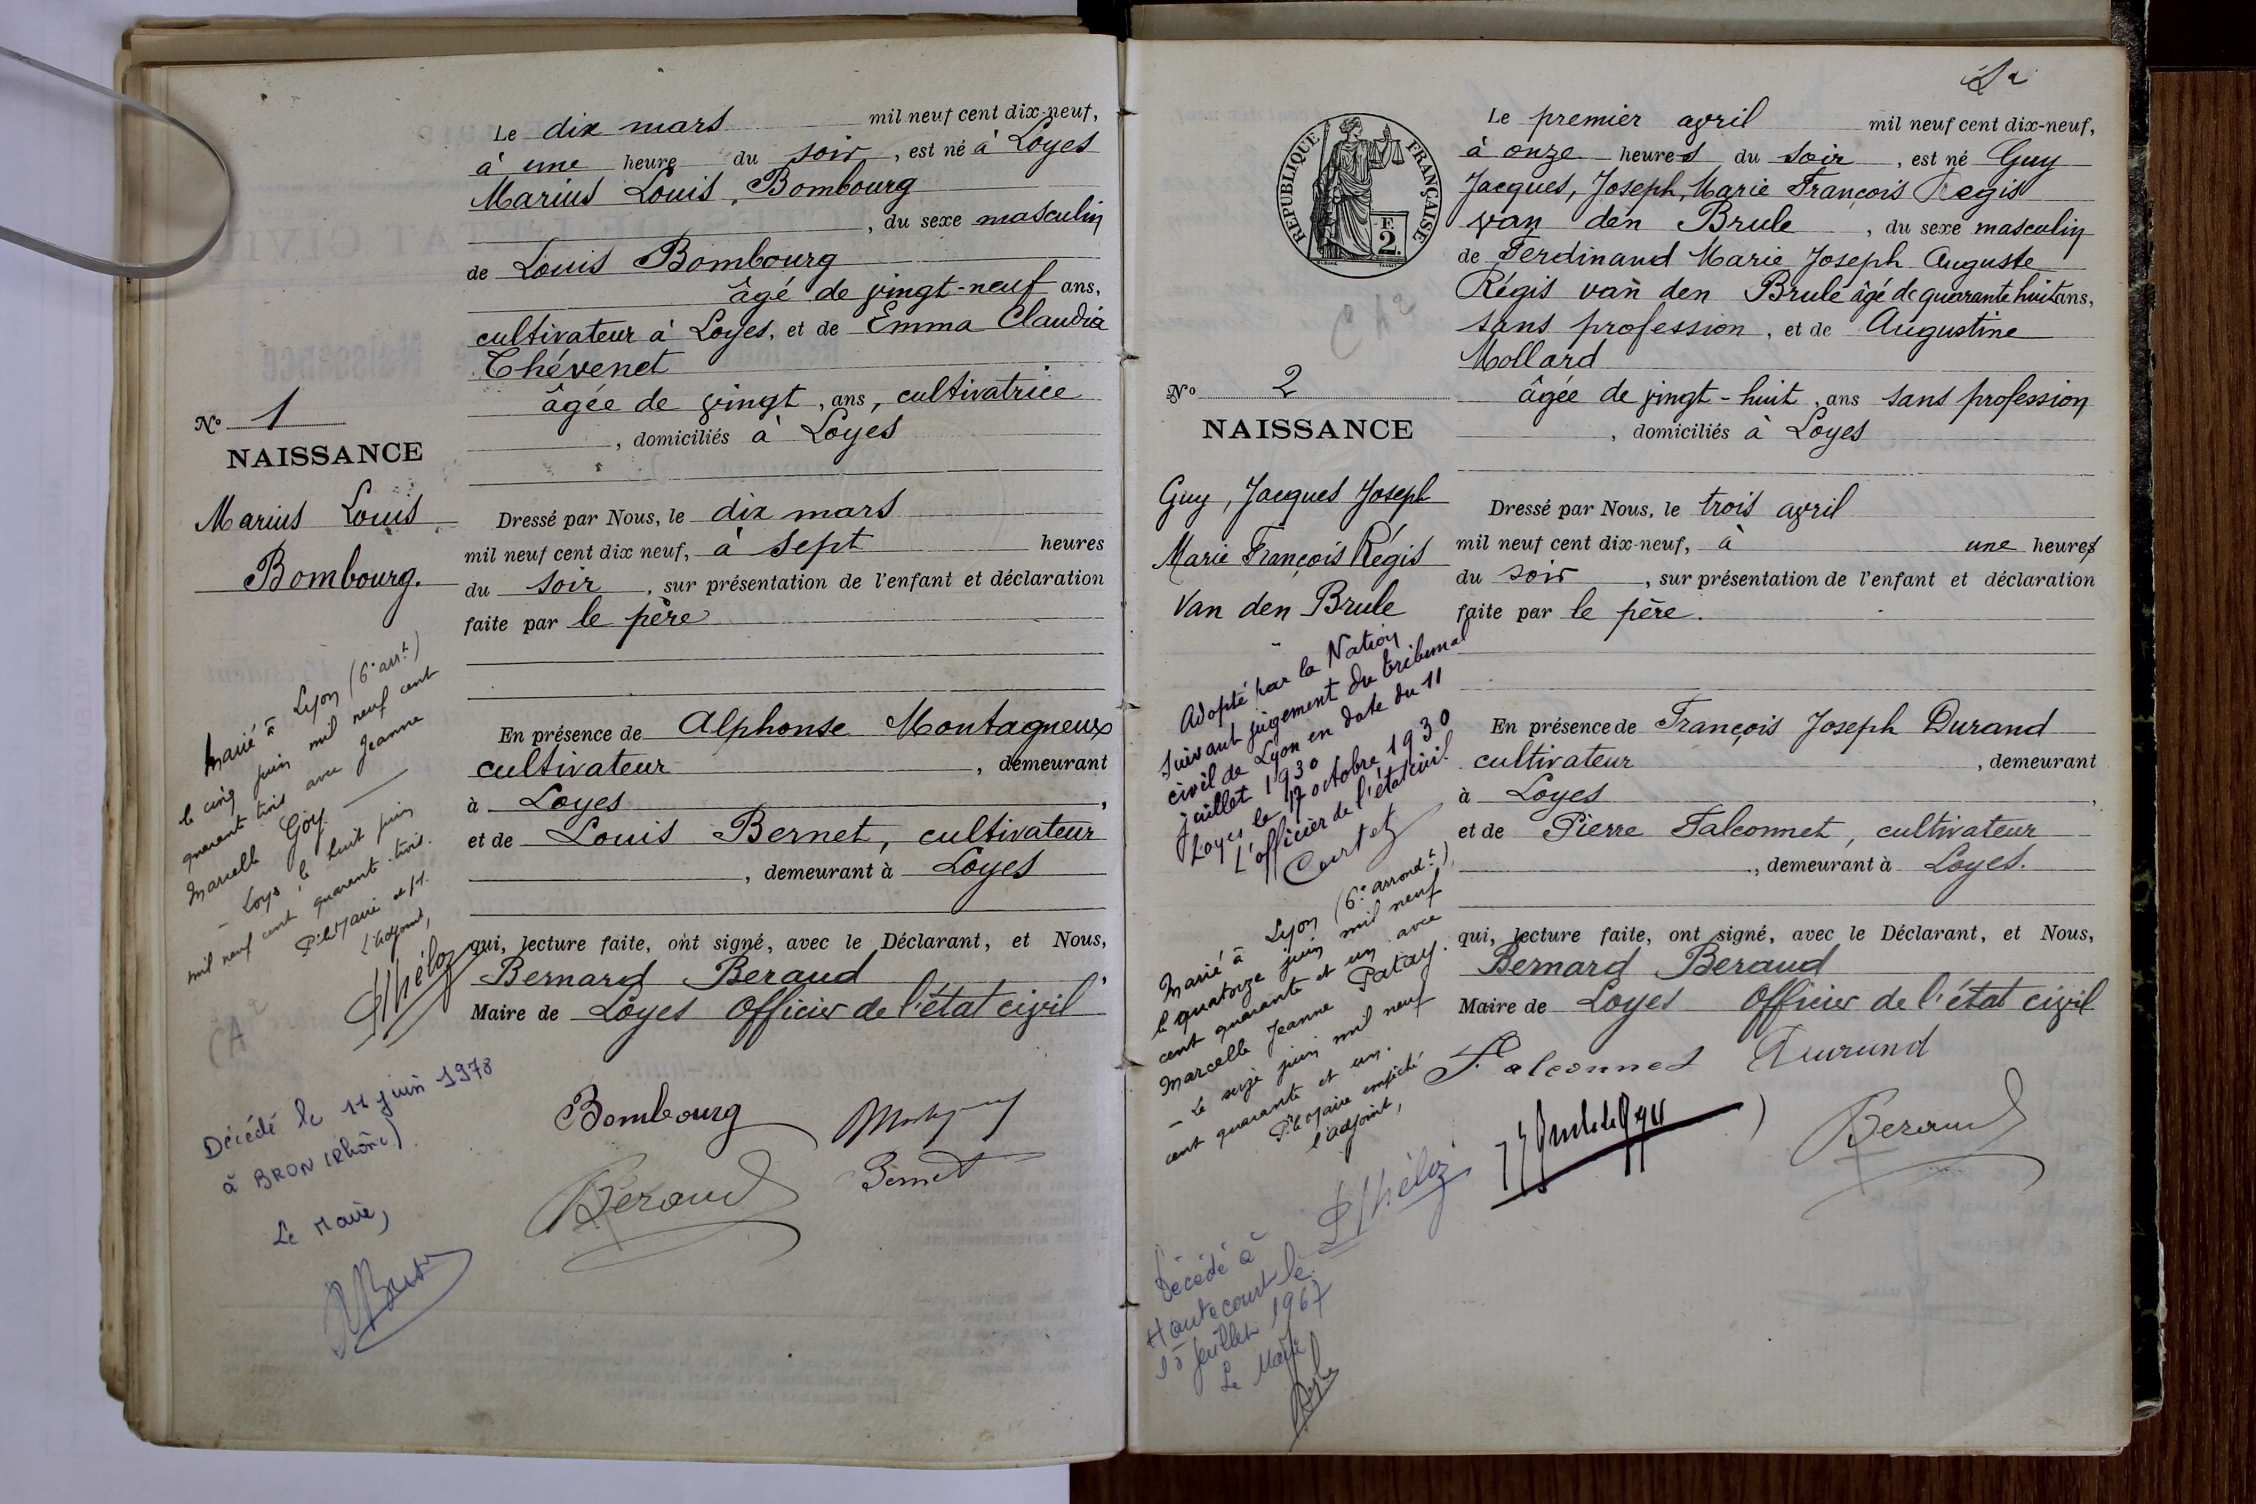 Le dix mars mil neuf cent dix-neuf,
à une heure du soir, est né à Loyes
Marius Louis, Bombourg
, du sexe masculin
de Louis Bombourg
âgé de vingt-neuf ans,
cultivateur à Loyes, et de Emma Claudia
Thévenet
âgée de vingt, ans, cultivatrice
, domiciliés à Loyes
No 1
NAISSANCE
Marius Louis
Bombourg.
Dressé par Nous, le dix mars
mil neuf cent dix neuf, à sept heures
du soir, sur présentation de l'enfant et déclaration
faite par le père
Marié à Lyon (6e arrt)
le cinq juin mil neuf cent
quarent trois avec Jeanne
Marcelle Goy
- Loyes, le huit juin
mil neuf cent quarent-trois.
P. le Maire
l'adjoint,
Décédé le 11 juin 1978
à BRON (Rhône)
Le Maire,
En présence de Alphonse Montagneux
cultivateur, demeurant
à Loyes,
et de Louis Bernet, cultivateur
, demeurant à Loyes
qui, lecture faite, ont signé, avec le Déclarant, et Nous,
Bernard Beraud,
Maire de Loyes Officier de l'état civil
Bombourg
Bernet
Beraud
RÉPUBLIQUE FRANÇAISE
2 F.
Le premier avril mil neuf cent dix-neuf,
à onze heures du soir, est né Guy
Jacques, Joseph, Marie François Regis
van den Brule, du sexe masculin
de Ferdinand Marie Joseph Auguste
Régis van den Brule âgé de quarante huit ans,
sans profession, et de Augustine
Mollard
âgée de vingt-huit, ans sans profession
, domiciliés à Loyes
No 2
NAISSANCE
Guy, Jacques Joseph
Marie François Régis
Van den Brule
Dressé par Nous, le trois avril
mil neuf cent dix-neuf, à une heures
du soir, sur présentation de l'enfant et déclaration
faite par le père.
Adopté par la Nation
suivant jugement du tribunal
civil de Lyon en date du 11
juillet 1930
Loyes le 17 octobre 1930
L'officier de l'état civil
Marié à Lyon (6e arrondt),
le quatorze juin mil neuf
cent quarante et un avec
Marcelle Jeanne Patay.
- Le seize juin mil neuf
cent quarante et un.
P. le Maire empêché
l'adjoint,
Décédé à
Hautecourt le
15 juillet 1967
Le Maire
En présence de François Joseph Durand
cultivateur, demeurant
à Loyes,
et de Pierre Falconnet, cultivateur
, demeurant à Loyes.
qui, lecture faite, ont signé, avec le Déclarant, et Nous,
Bernard Beraud
Maire de Loyes Officier de l'état civil
Falconnet Durand
Beraud